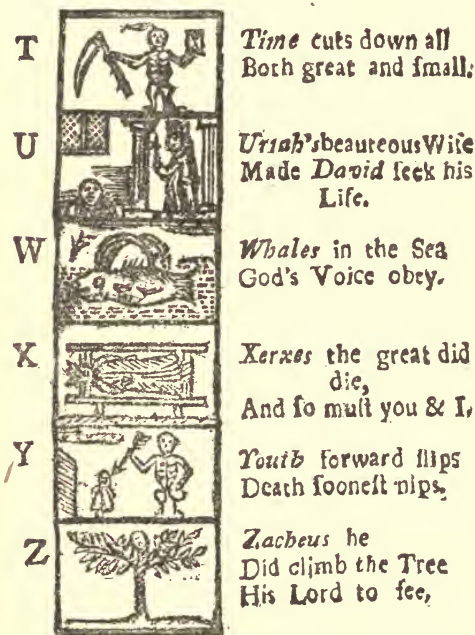 T
Time cuts down all
Both great and ſmall.
U
Uriah's beauteous Wife
Made David ſeek his
Life.
W
Whales in the Sea
God's Voice obey.
X
Xerxes the great did
die,
And ſo muſt you & I,
Y
Youth forward ſlips
Death ſooneſt nips.
Z
Zacheus he
Did climb the Tree
His Lord to ſee,